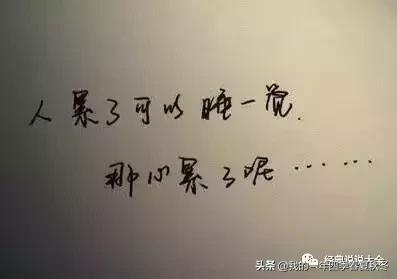 人累了可以睡一觉.
那心累了呢……
经典说说大全
头条@我的一年四季春夏秋冬